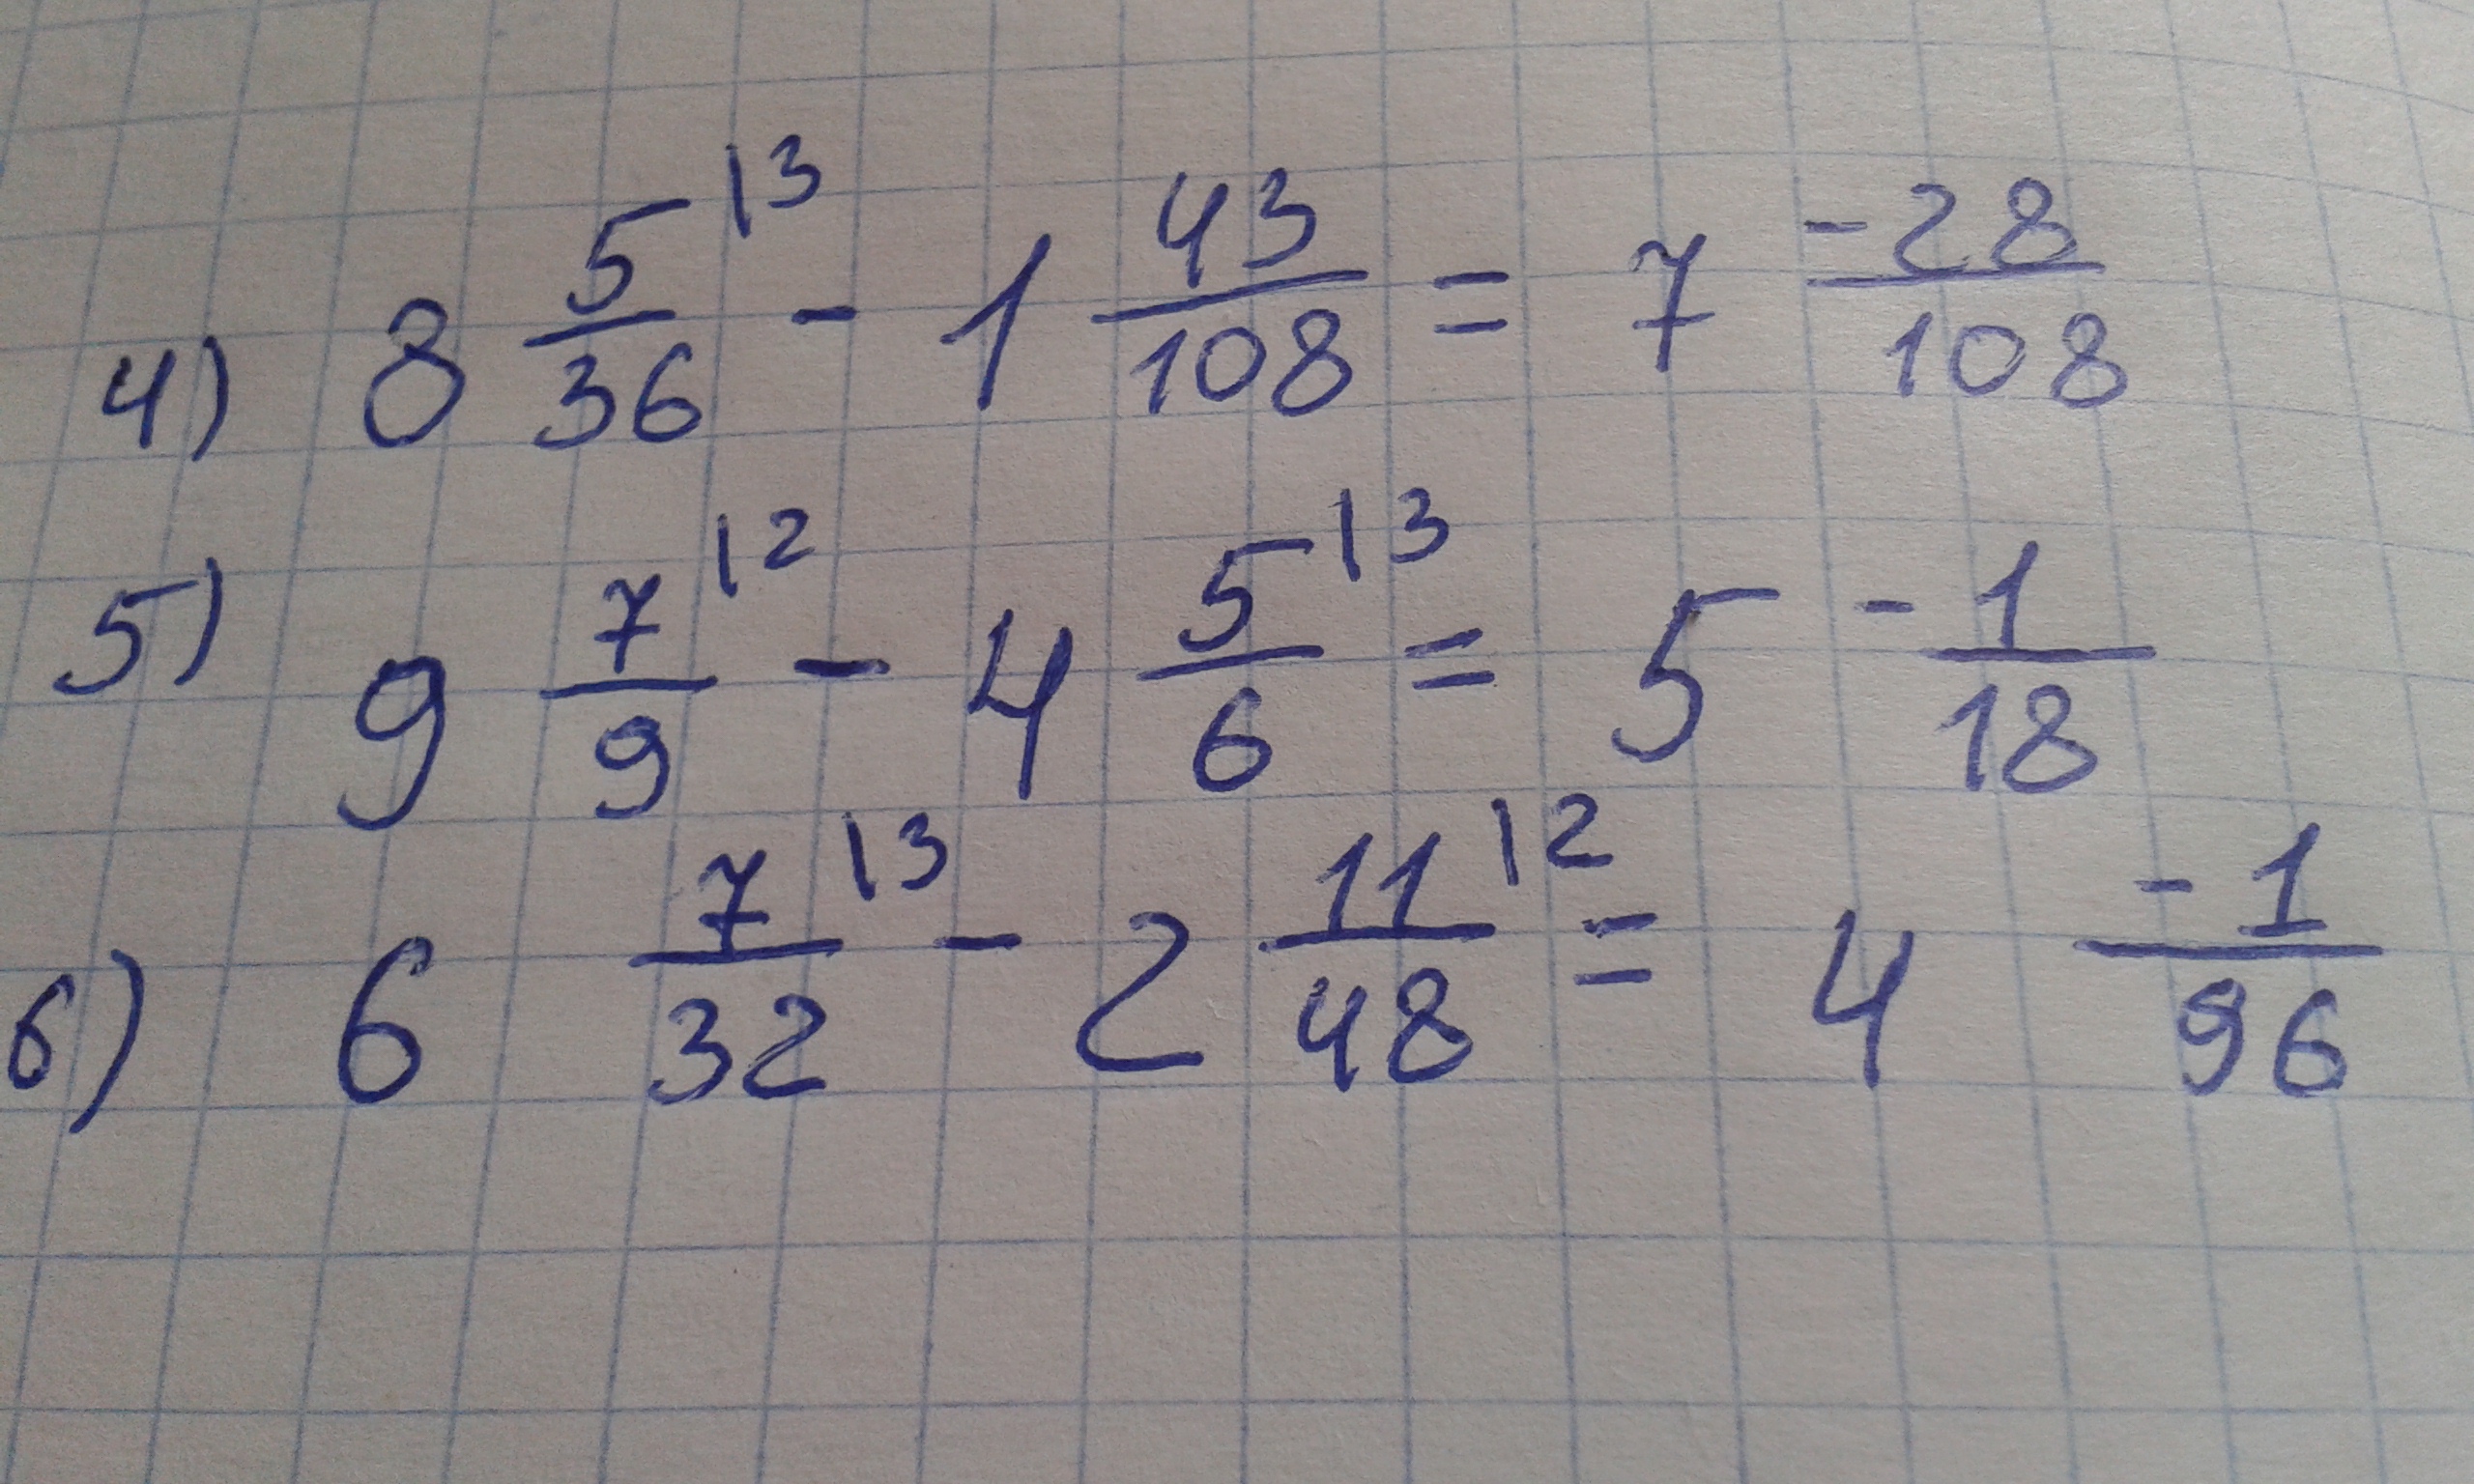 4) 8 5/36 |3 - 1 43/108 = 7 -28/108
5) 9 7/9 |2 - 4 5/6 |3 = 5 -1/18
6) 6 7/32 |3 - 2 11/48 |2 = 4 -1/96